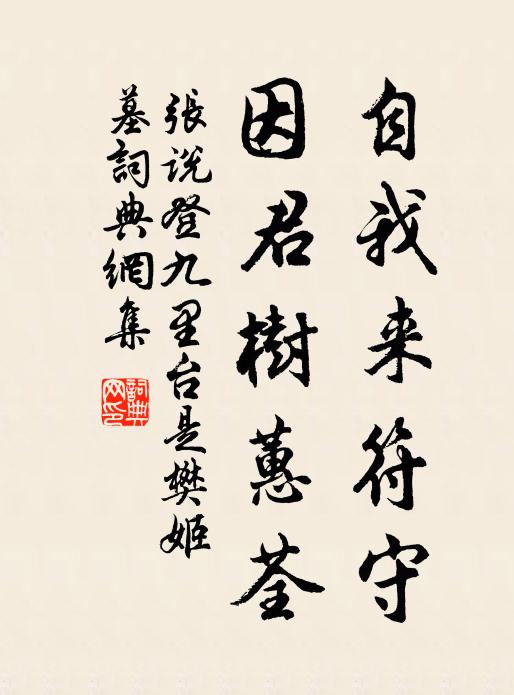 自我来符守
因君樹蕙荃
張說登九里台是樊姬
墓詞典網集
詞典网印